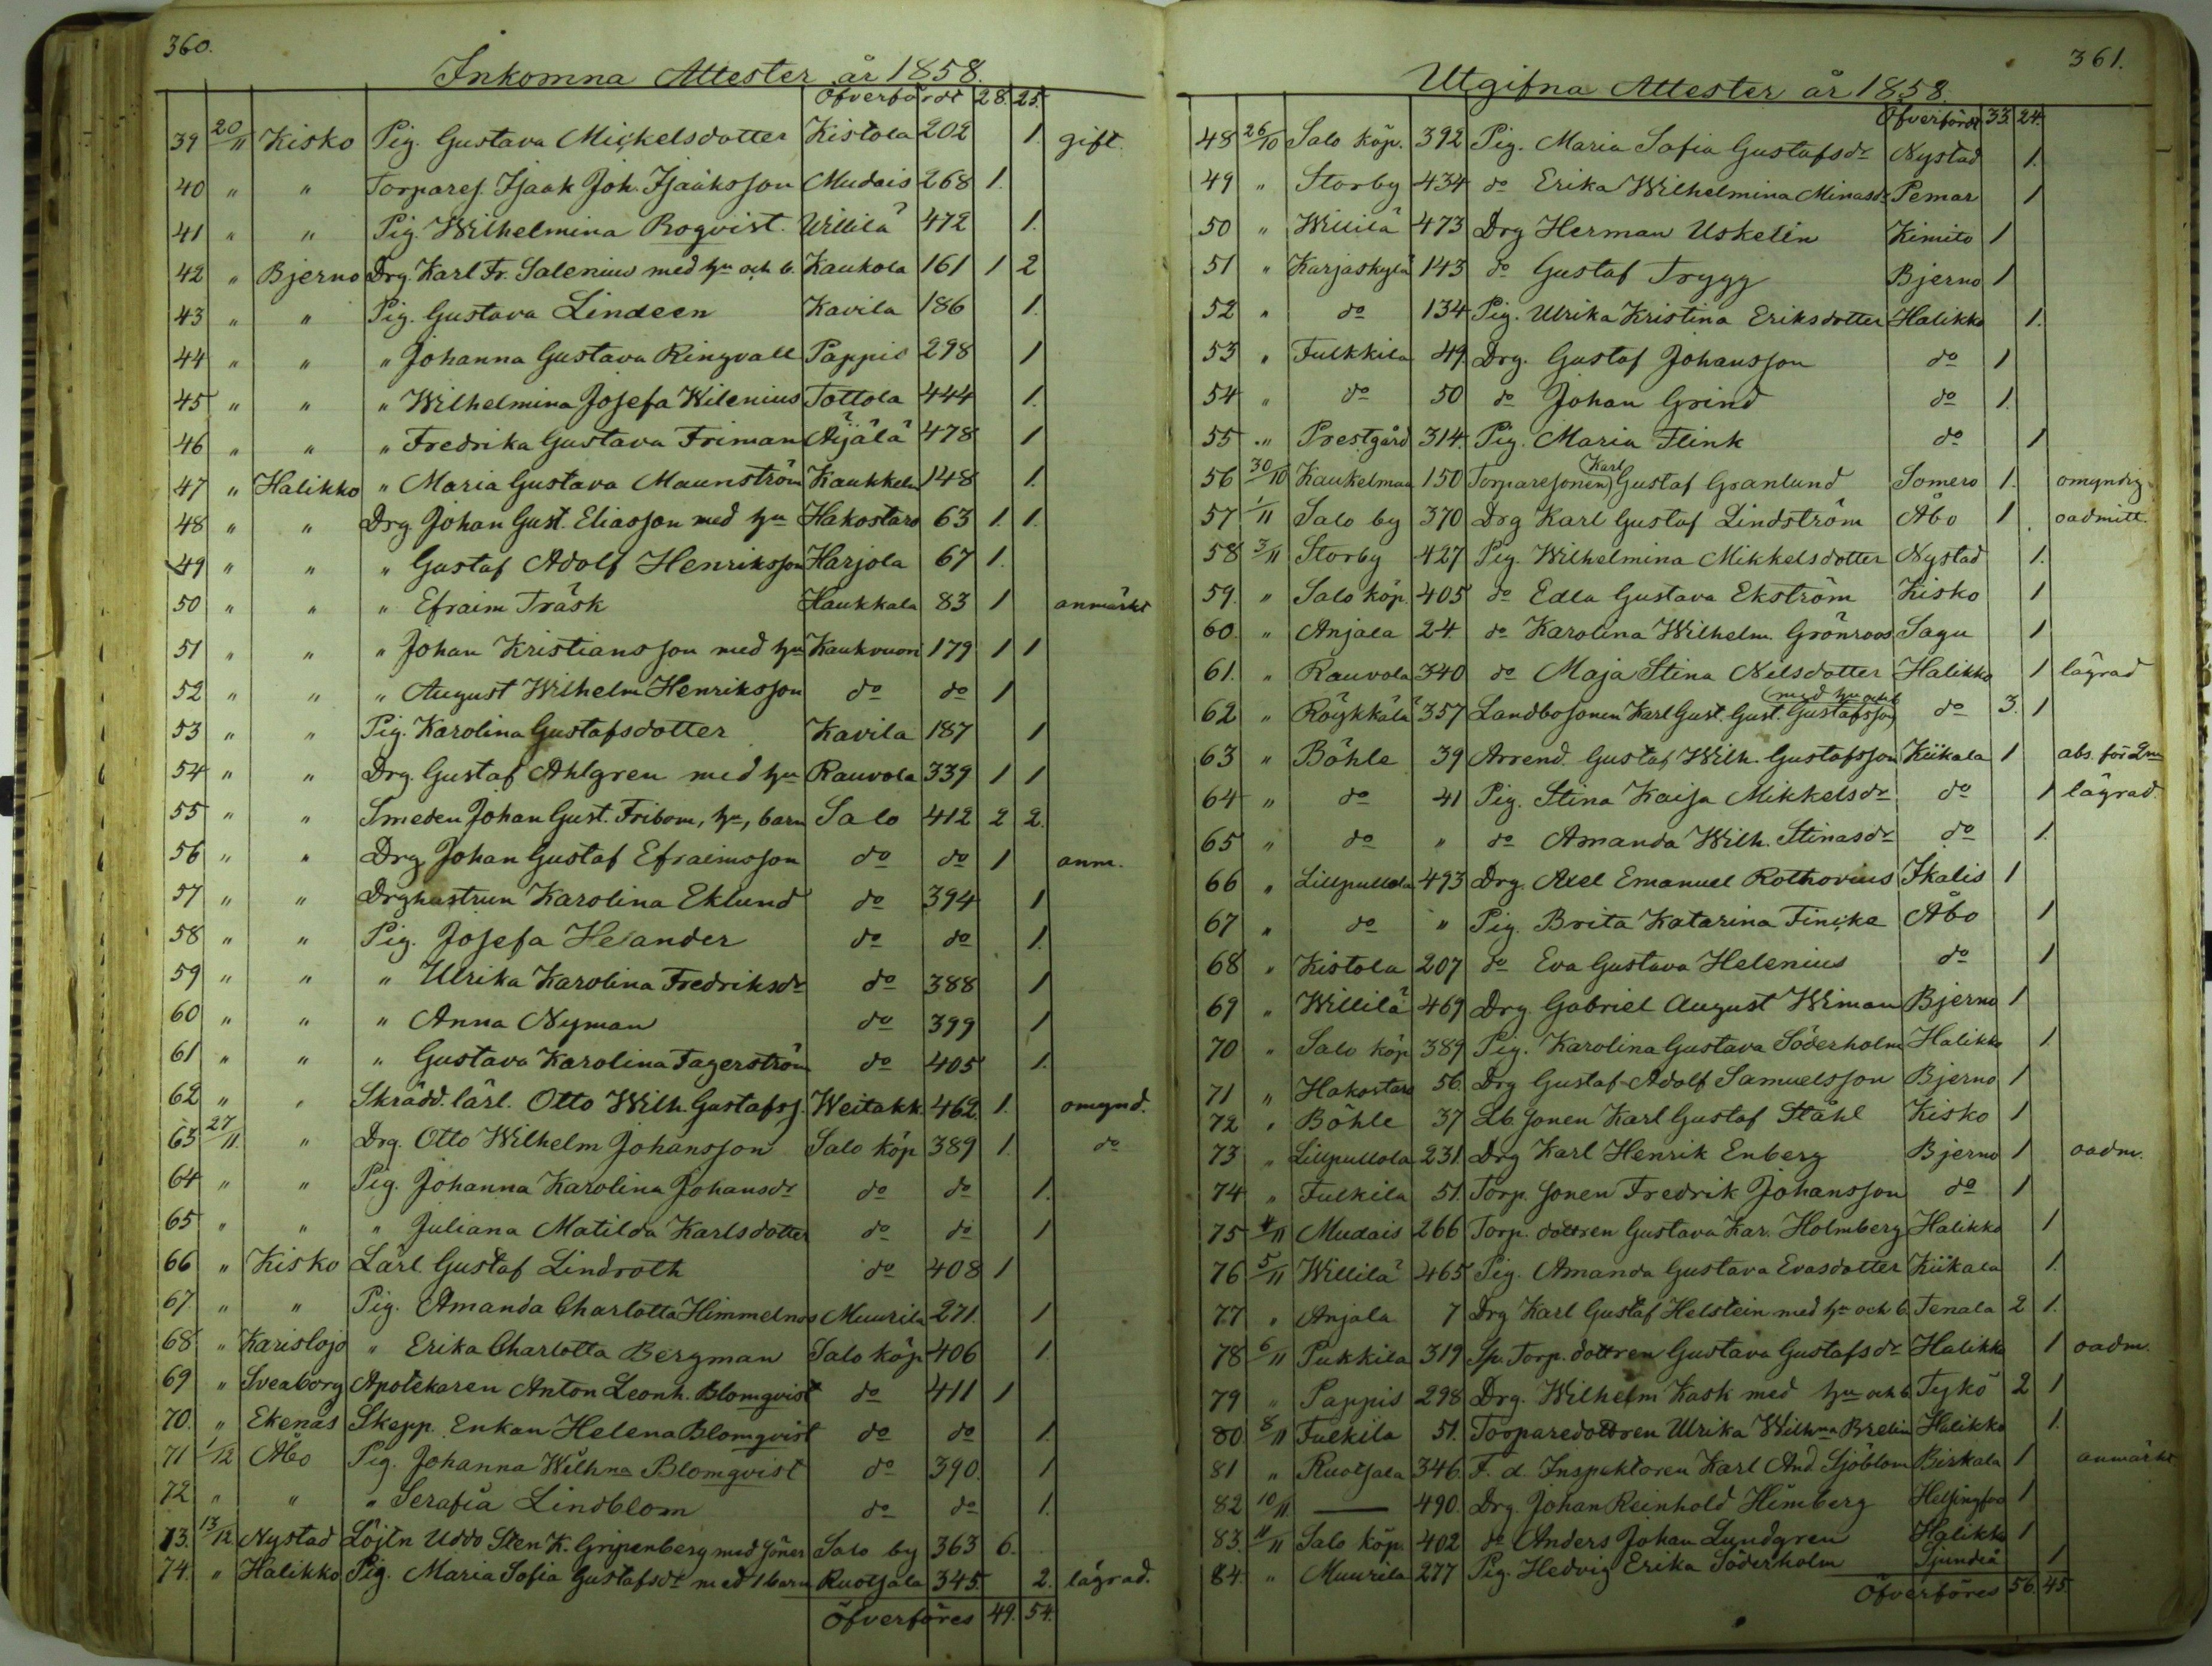 360.
Inkomna Attester år 1858.
Öfverfördt 28. 25.
39 20/11 Kisko Pig. Gustava Mickelsdotter Kistola 202 1. gift.
40 " " Torparef. Isaak Joh. Isaaksson Mudais 268 1.
41 " " Pig. Wilhelmina Roqvist. Willilä 472 1.
42 " Bjerno Drg. Karl Fr. Salenius med hu och b. Kaukola 161 1 2
43 " " Pig. Gustava Lindeen Kavila 186 1.
44 " " " Johanna Gustava Ringvall Pappis 298 1
45 " " " Wilhelmina Josefa Wilenius Tottola 444 1.
46 " " " Fredrika Gustava Friman Äijälä 478 1
47 " Halikko " Maria Gustava Maunström Kaukkelm 148 1.
48 " " Drg Johan Gust. Eliasson med hu Hakostaro 63 1. 1.
49 " " " Gustaf Adolf Henriksson Harjola 67 1.
50 " " " Efraim Träsk Haukkala 83 1 anmärkt
51 " " " Johan Kristiansson med hu Kaukvuori 179 1 1
52 " " " August Wilhelm Henriksson do do 1
53 " " Pig. Karolina Gustafsdotter Kavila 187 1
54 " " Drg. Gustaf Ahlgren med hu Rauvola 339 1 1
55 " " Smeden Johan Gust. Fribom, hu, barn Salo 412 2 2.
56 " " Drg Johan Gustaf Efraimsson do do 1 anm.
57 " " Drghustrun Karolina Eklund do 394 1
58 " " Pig. Josefa Helander do do 1.
59 " " " Ulrika Karolina Fredriksdr do 388 1
60 " " " Anna Nyman do 399 1
61 " " " Gustava Karolina Fagerström do 405 1.
62 " " Skrädd. lärl. Otto Wilh. Gustafss. Weitakk. 462. 1. omynd.
63 27/11. " Drg. Otto Wilhelm Johansson Salo köp 389 1. do
64 " " Pig. Johanna Karolina Johansdr do do 1.
65 " " " Juliana Matilda Karlsdotter do do 1
66 " Kisko Lärl. Gustaf Lindroth do 408 1
67. " " Pig. Amanda Charlotta Himmelnos Muurila 271. 1
68 " Karislojo " Erika Charlotta Bergman Salo köp 406 1.
69 " Sveaborg Apotekaren Anton Leonh. Blomqvist do 411 1
70. " Ekenäs Skepp. Enkan Helena Blomqvist do do 1.
71 1/12 Åbo Pig. Johanna Wilhna Blomqvist do 390. 1
72 " " " Serafia Lindblom do do 1.
73. 13/12 Nystad Löjtn Uddo Sten K. Gripenberg med söner Salo by 363 6.
74. " Halikko Pig. Maria Sofia Gustafsdr med 1 barn Ruotsala 345. 2. lägrad.
Öfverföres 49. 54.
361.
Utgifna Attester år 1858.
Öfverfördt 33 24.
48 26/10 Salo köp. 392 Pig. Maria Sofia Gustafsdr Nystad 1.
49 " Storby 434 do Erika Wilhelmina Minasdr Pemar 1
50 " Willilä 473 Drg Herman Uskelin Kimito 1
51 " Karjaskylä 143 do Gustaf Trygg Bjerno 1
52 " do 134 Pig. Ulrika Kristina Eriksdotter Halikko 1.
53 " Fulkkila 49. Drg. Gustaf Johansson do 1
54 " do 50 do Johan Grind do 1.
55 " Prestgård 314. Pig. Maria Flink do 1
56 30/10 Kaukelmaa 150 Torparesonen Karl Gustaf Granlund Somero 1. omyndig
57 1/11 Salo by 370 Drg Karl Gustaf Lindström Åbo 1. oadmitt.
58 3/11 Storby 427 Pig. Wilhelmina Mikkelsdotter Nystad 1.
59. " Salo köp. 405 do Edla Gustava Ekström Kisko 1
60. " Anjala 24 do Karolina Wilhelm. Grönroos Sagu 1
61. " Rauvola 340 do Maja Stina Nilsdotter Halikko 1 lägrad
62 " Röykkälä 357 Landbosonen Karl Gust. Gust. Gustafsson med hu och b do 3. 1
63 " Böhle 39 Arrend. Gustaf Wilh. Gustafsson Kiikala 1 abs. för
64 " do 41 Pig. Stina Kaisa Mikkelsdr do 1 lägrad.
65 " do " do Amanda Wilh. Stinasdr do 1.
66 " Lillpullola 493 Drg. Axel Emanuel Rothovius Ikalis 1
67 " do " Pig. Brita Katarina Fincke Åbo 1
68 " Kistola 207 do Eva Gustava Helenius do 1
69 " Willilä 469 Drg. Gabriel August Wiman Bjerno 1
70 " Salo köp 389 Pig. Karolina Gustava Söderholm Halikko 1
71 " Hakostaro 56. Drg Gustaf Adolf Samuelsson Bjerno 1
72 " Böhle 37 Lb. sonen Karl Gustaf Ståhl Kisko 1
73 " Lillpullola 231. Drg Karl Henrik Enberg Bjerno 1 oadm.
74 " Fulkila 51. Torp. sonen Fredrik Johansson do 1
75 4/11 Mudais 266 Torp. dottren Gustava Kar. Holmberg Halikko 1
76 5/11 Willilä 465 Pig. Amanda Gustava Evasdotter Kiikala 1.
77 " Anjala 7 Drg Karl Gustaf Helstein med hu och b. Tenala 2 1.
78 6/11 Pukkila 319 Sp. Torp. dottren Gustava Gustafsdr Halikko 1 oadm.
79 " Pappis 298 Drg. Wilhelm Kask med hu och b Tykö 2 1
80 8/11 Fulkila 51. Torparedottren Ulrika Wilhna Brelin Halikko 1.
81 " Ruotsala 346. F. d. Inspektoren Karl And. Sjöblom Birkala 1 anmärkt
82 10/11 — 490. Drg. Johan Reinhold Himberg Helsingfors 1
83. 11/11 Salo köp. 402 do Anders Johan Lundgren Halikko 1
84. " Muurila 277 Pig. Hedvig Erika Söderholm Sjundeå 1
Öfverföres 56. 45